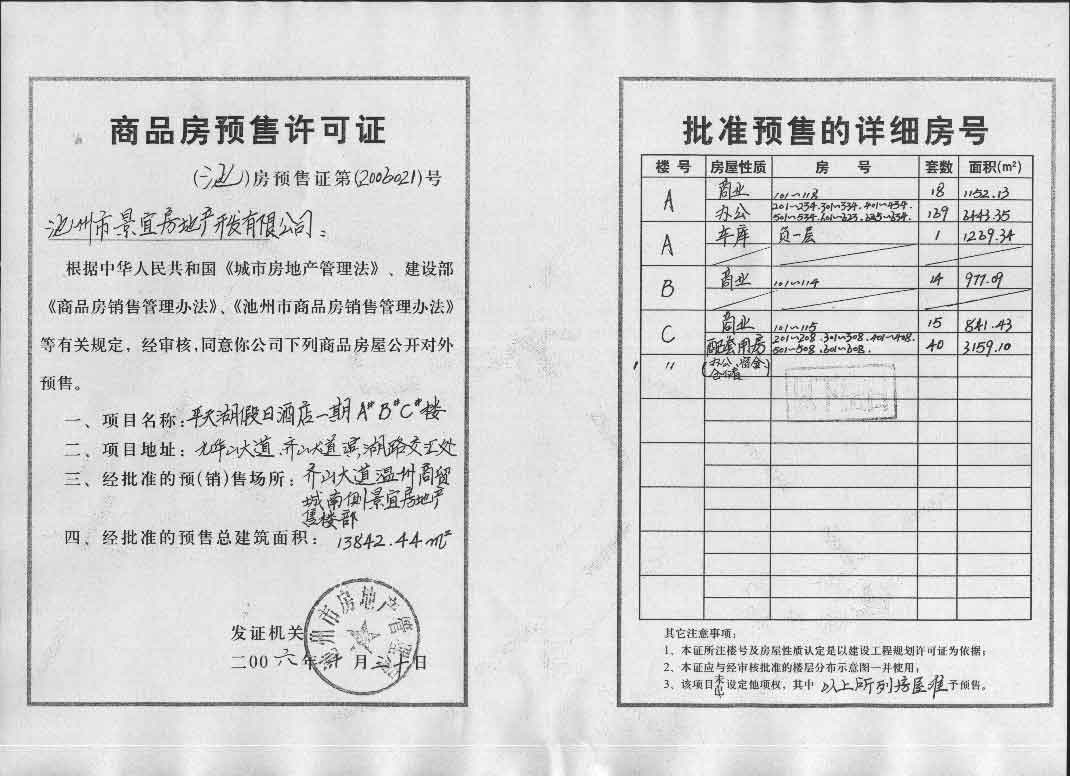 商品房预售许可证
(池)房预售证第(2006021)号
池州市景宜房地产开发有限公司：
根据中华人民共和国《城市房地产管理法》、建设部
《商品房销售管理办法》、《池州市商品房销售管理办法》
等有关规定，经审核，同意你公司下列商品房屋公开对外
预售。
一、项目名称：平天湖假日酒店一期A#B#C#楼
二、项目地址：九华山大道、齐山大道、滨湖路交汇处
三、经批准的预(销)售场所：齐山大道温州商贸
城南侧景宜房地产
售楼部
四、经批准的预售总建筑面积：13842.44m²
池州市房地产管理
发证机关
二00六年 月三十日
批准预售的详细房号
楼号 房屋性质 房号 套数 面积(m²)
A 商业 101~118 18 1152.13
办公 201~234.301~334.401~434.
501~534.601~623.625~634. 169 6443.35
A 车库 负一层 1 1269.34
B 商业 101~114 14 977.09
C 商业 101~115 15 841.43
〃 配套用房 201~208.301~308.401~408.
501~508.601~608. 40 3159.10
其它注意事项：
1、本证所注楼号及房屋性质认定是以建设工程规划许可证为依据；
2、本证应与经审核批准的楼层分布示意图一并使用；
3、该项目未设定他项权，其中以上所列房屋准予预售。